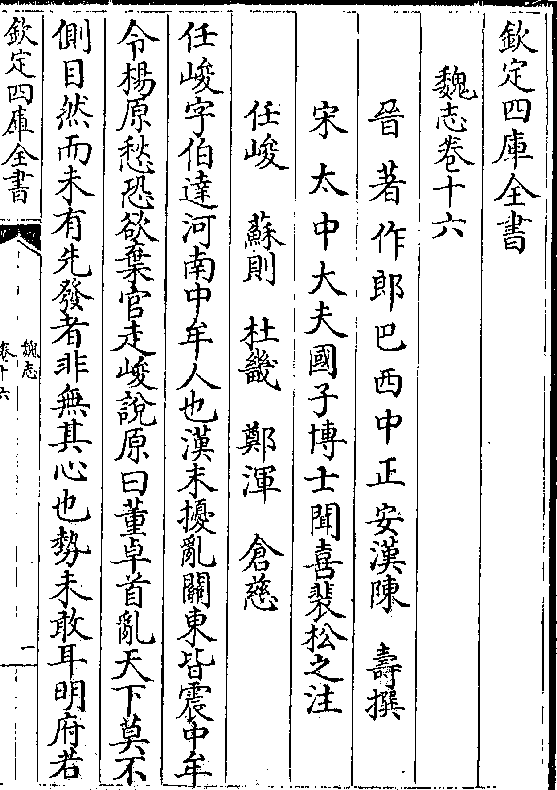 欽定四庫全書
魏志卷十六
晉著作郎巴西中正安漢陳壽撰
宋太中大夫國子博士聞喜裴松之注
任峻 蘇則 杜畿 鄭渾 倉慈
任峻字伯達河南中牟人也漢末擾亂關東皆震中牟
令楊原愁恐欲棄官走峻說原曰董卓首亂天下莫不
側目然而未有先發者非無其心也勢未敢耳明府若
欽定四庫全書
魏志
卷十六
一